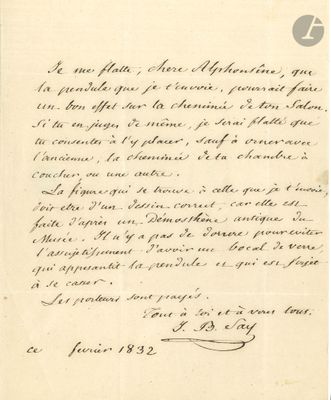 Je me flatte, chere Alphonsine, que
la pendule que je t'envoie, pourrait faire
un bon effet sur la cheminée de ton Salon.
Si tu en juges de même, je serai flatté que
tu consentes à l'y placer, sauf à orner avec
l'ancienne, la cheminée de ta chambre à
coucher, ou une autre.
La figure qui se trouve à celle que je t'envoie,
doit etre d'un dessin correct, car elle est
faite d'après un Démosthène antique du
Musée. Il n'y a pas de dorure pour eviter
l'assujetissement d'avoir un bocal de verre
qui appesantit la pendule et qui est sujet
à se casser.
Les porteurs sont payés.
Tout à toi et à vous tous.
J. B. Say
ce fevrier 1832